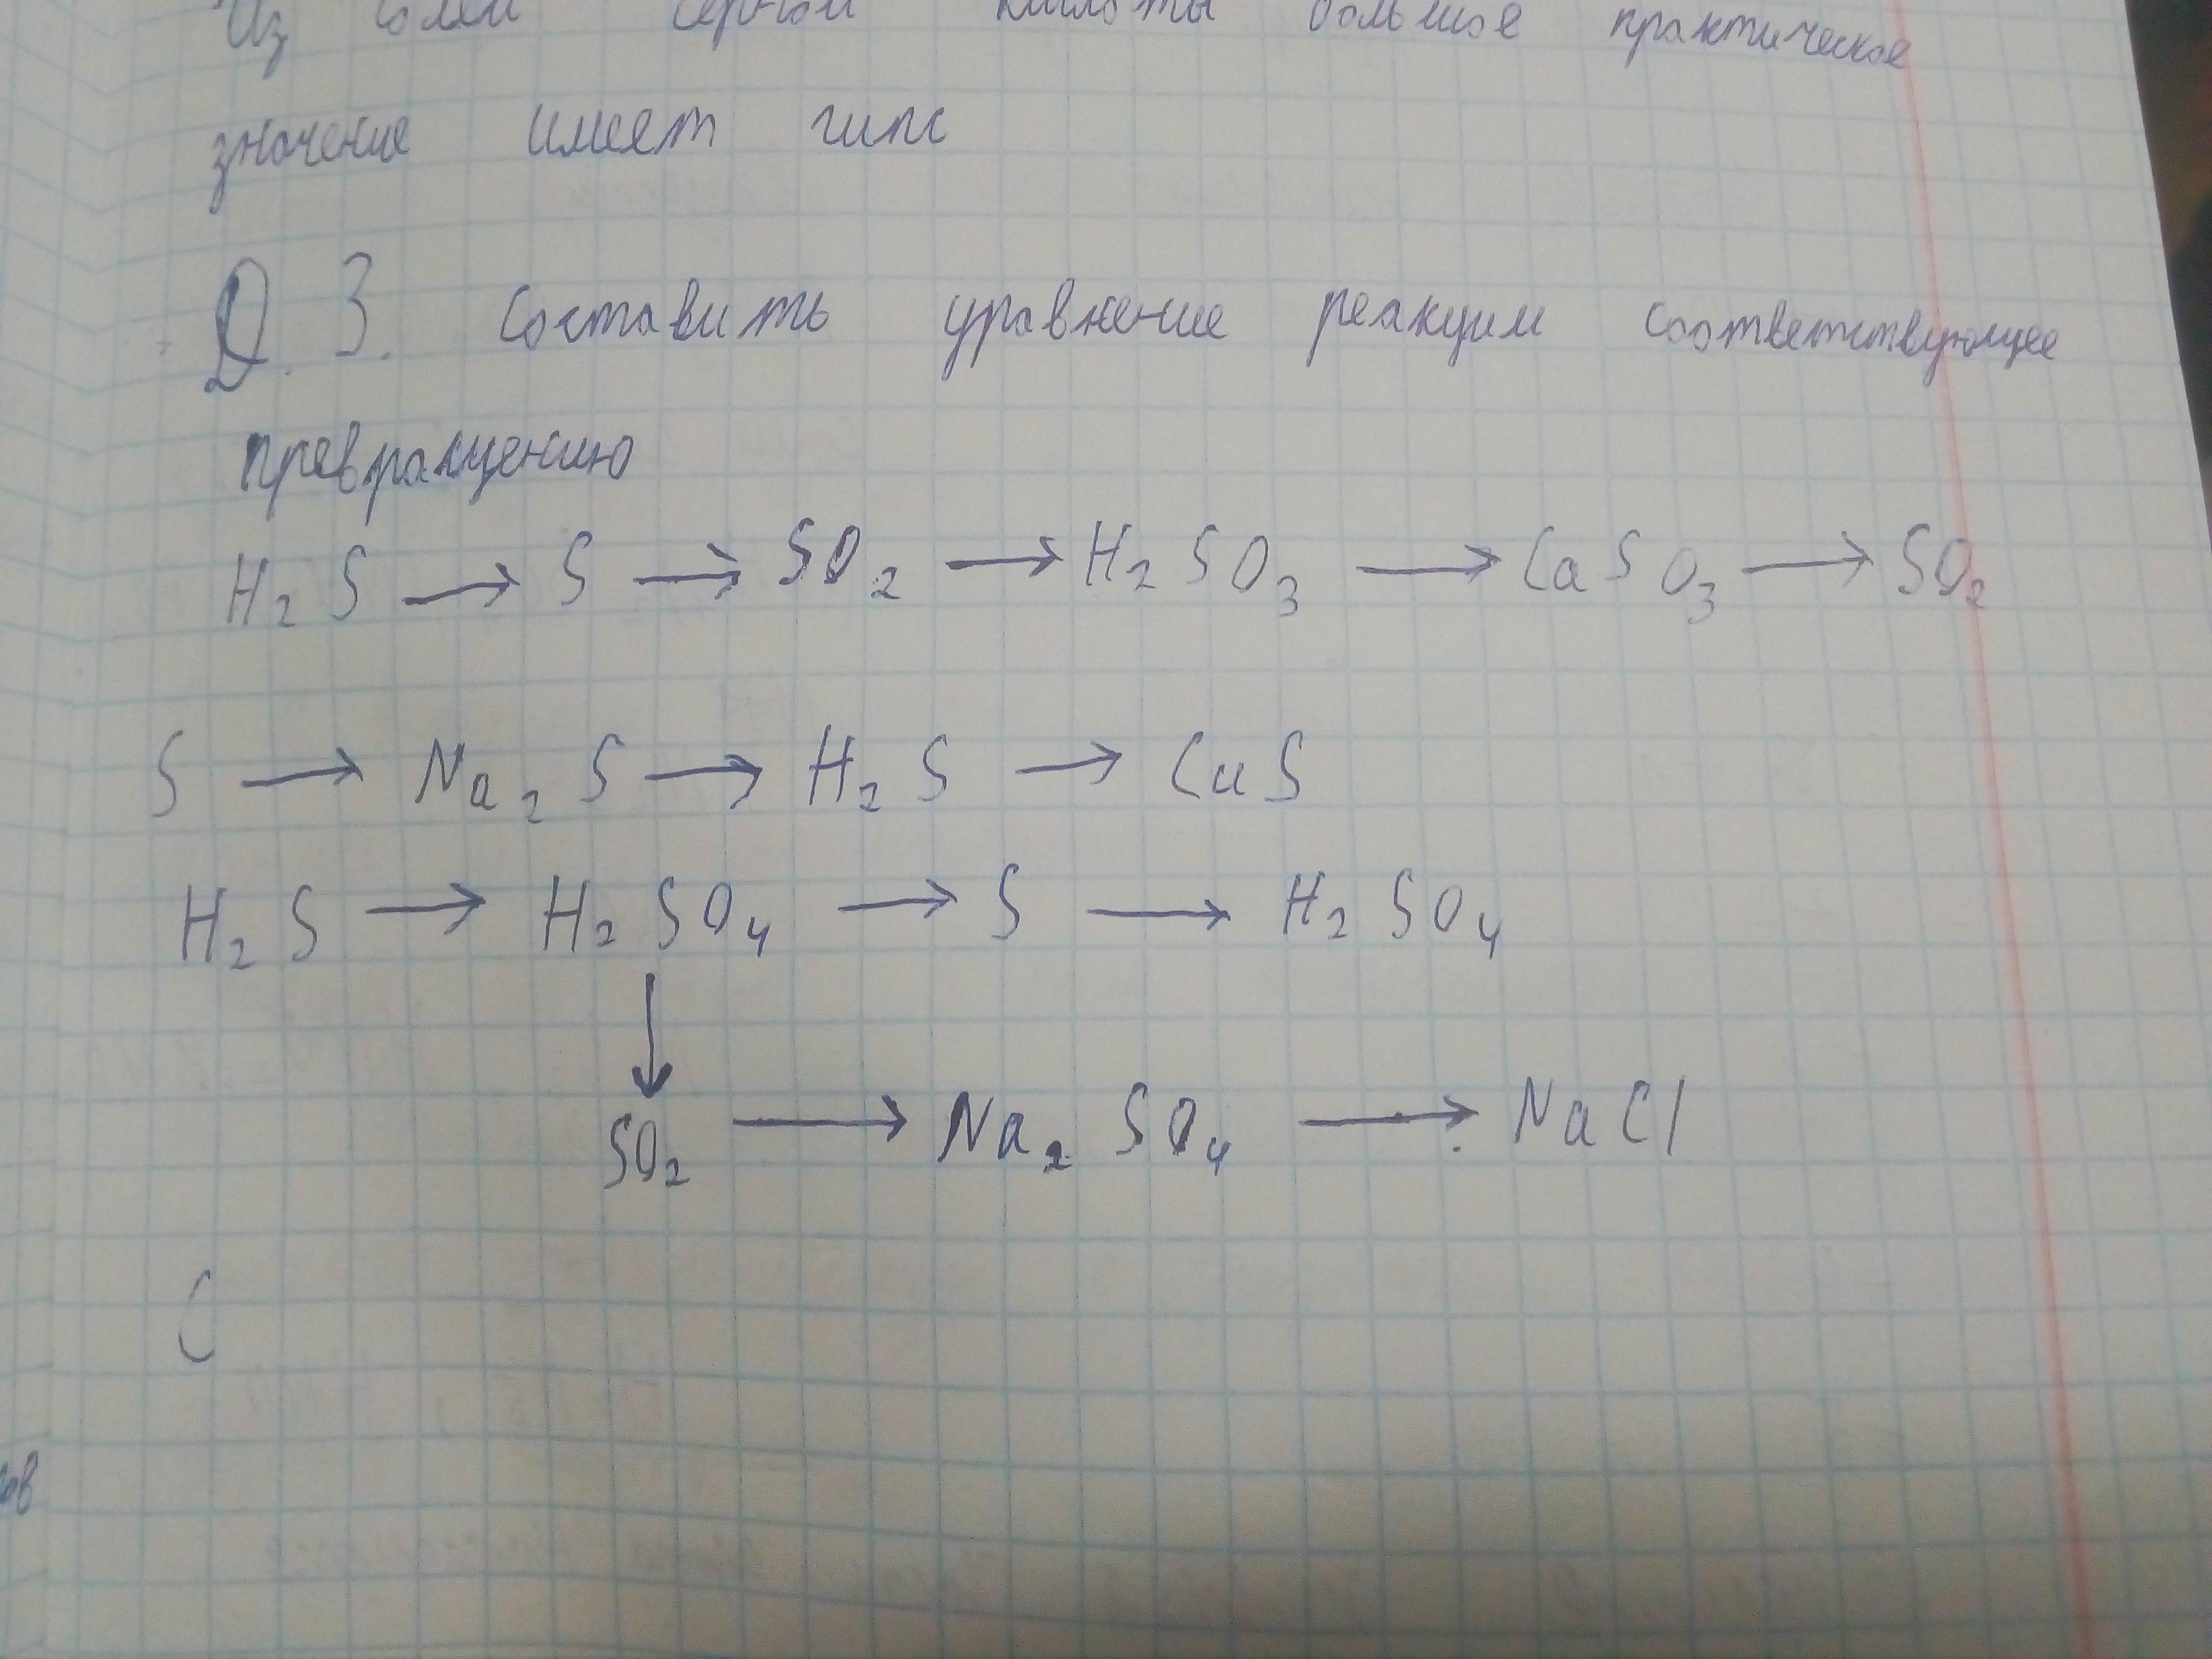 Из солей серной кислоты большое практическое
значение имеет гипс
Д. З. Составить уравнение реакции соответствующее
превращению
H₂S → S → SO₂ → H₂SO₃ → CaSO₃ → SO₂
S → Na₂S → H₂S → CuS
H₂S → H₂SO₄ → S → H₂SO₄
↓
SO₂ → Na₂SO₄ → NaCl
С
ов